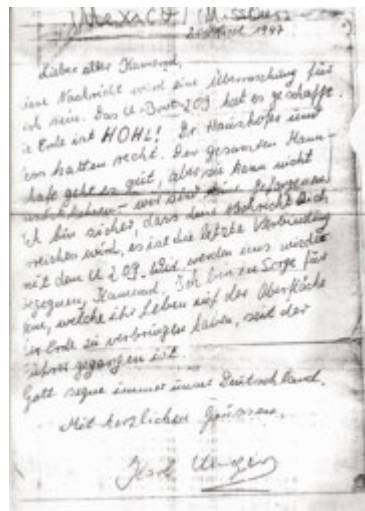 2 März 1947
Lieber alter Kamerad,
eine Nachricht wird eine Überraschung für
ich sein. Das U-Boot 209 hat es geschafft.
ie Erde ist HOHL! Dr. Haushofer und
ess hatten recht. Der gesamten Mann-
haft geht es gut, aber sie kann nicht
wir sind keine Gefangenen
ch bin sicher, dass diese Nachricht Dich
reichen wird, es ist die letzte Verbindung
mit dem U 209. Wir werden uns wieder
egegnen, Kamerad. Ich bin in Sorge für
ene, welche ihr Leben auf der Oberfläche
er Erde zu verbringen haben, seit der
ührer gegangen ist.
Gott segne immer unser Deutschland.
Mit herzlichen Grüssen,
Karl Unger